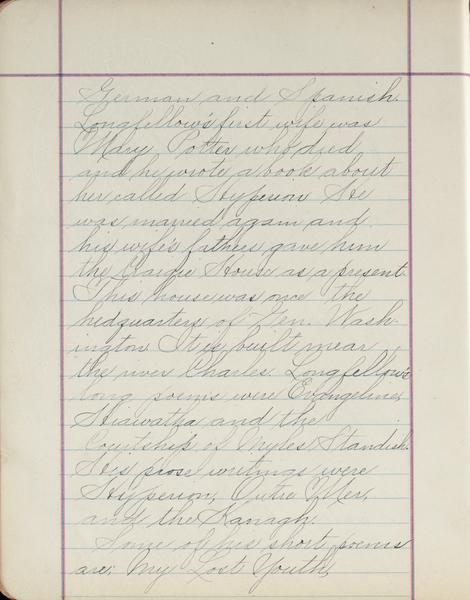 German and Spanish.
Longfellow's first wife was
Mary Potter who died
and he wrote a book about
her called Hyperion He
was married again and
his wife's fathers gave him
the Craigie House as a present.
This house was once the
hedquarters of Gen. Wash-
ington. It is built near
the river Charles. Longfellow's
long poems were Evangeline,
Hiawatha and the
Courtship of Myles Standish.
His prose writings were
Hyperion, Outre Mer,
and the Kanagh.
Some of his short poems
are; My Lost Youth,